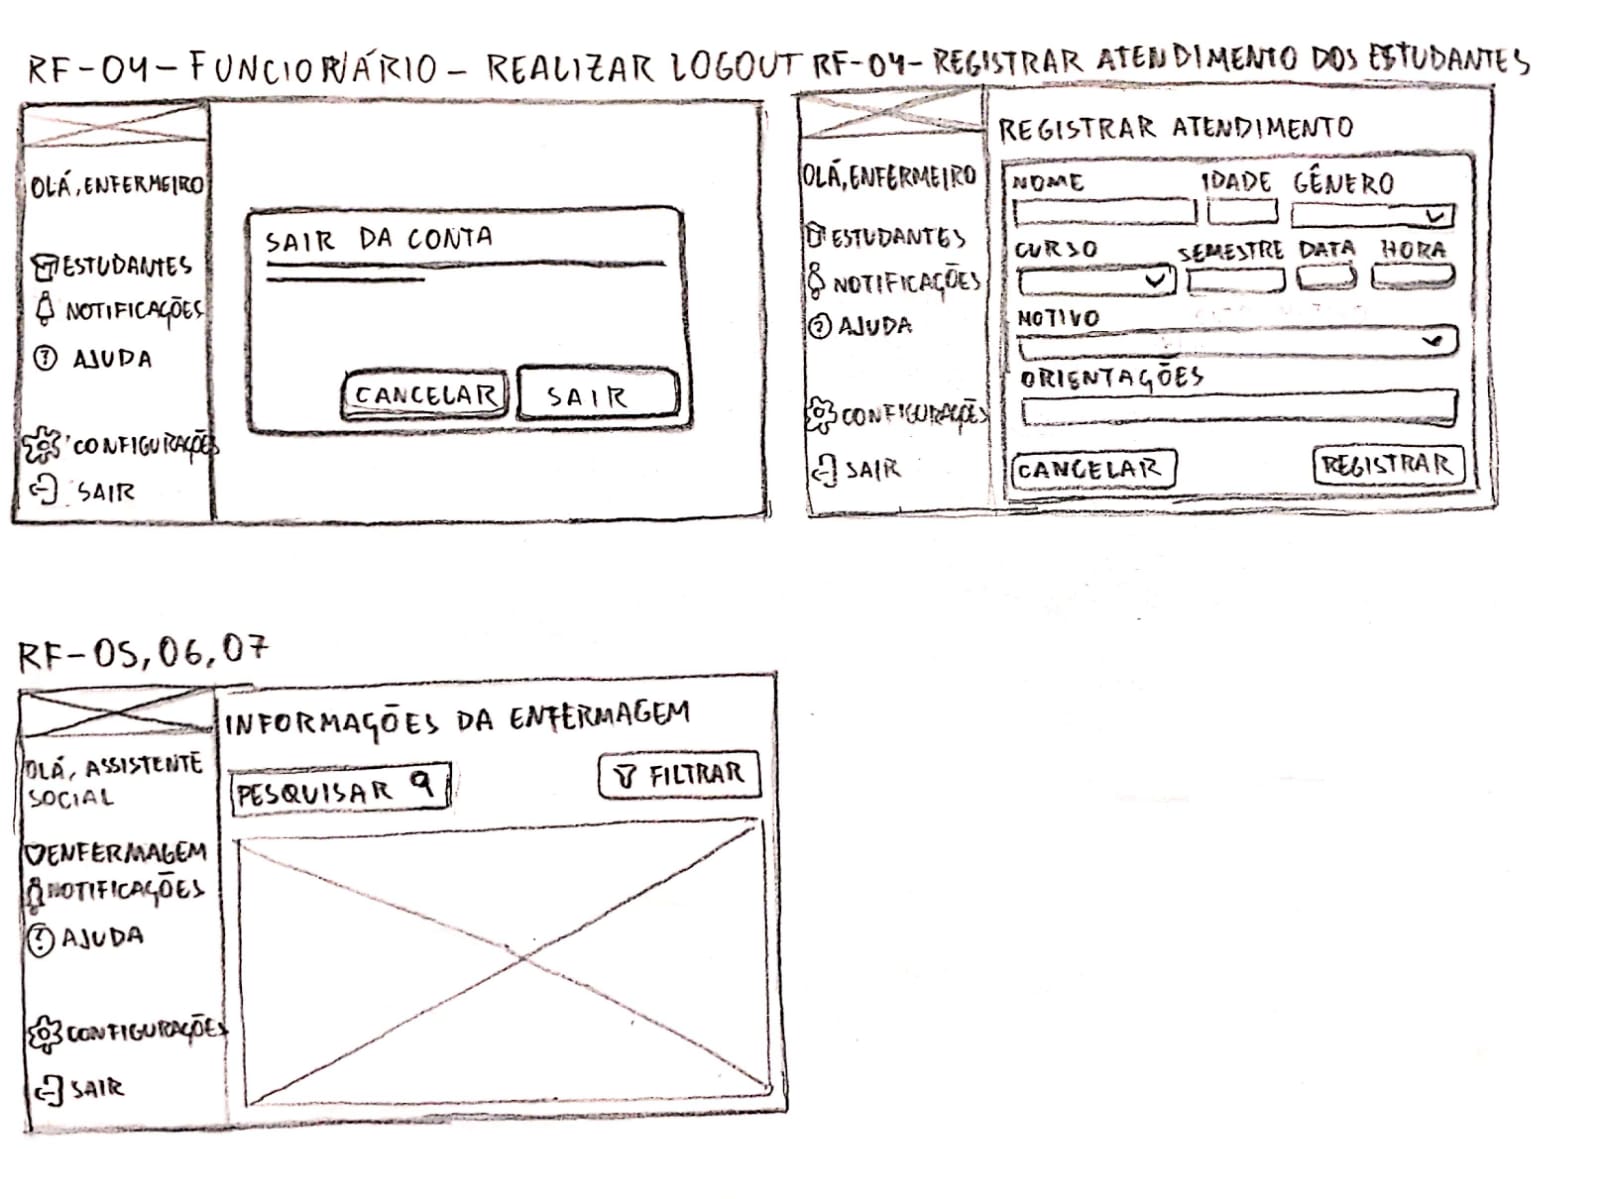 RF-04-FUNCIONÁRIO-REALIZAR LOGOUT
OLÁ, ENFERMEIRO
ESTUDANTES
NOTIFICAÇÕES
? AJUDA
CONFIGURAÇÕES
SAIR
SAIR DA CONTA
CANCELAR SAIR
RF-04-REGISTRAR ATENDIMENTO DOS ESTUDANTES
OLÁ, ENFERMEIRO
ESTUDANTES
NOTIFICAÇÕES
? AJUDA
CONFIGURAÇÕES
SAIR
REGISTRAR ATENDIMENTO
NOME IDADE GÊNERO
CURSO SEMESTRE DATA HORA
MOTIVO
ORIENTAÇÕES
CANCELAR REGISTRAR
RF-05,06,07
OLÁ, ASSISTENTE
SOCIAL
ENFERMAGEM
NOTIFICAÇÕES
? AJUDA
CONFIGURAÇÕES
SAIR
INFORMAÇÕES DA ENFERMAGEM
PESQUISAR FILTRAR